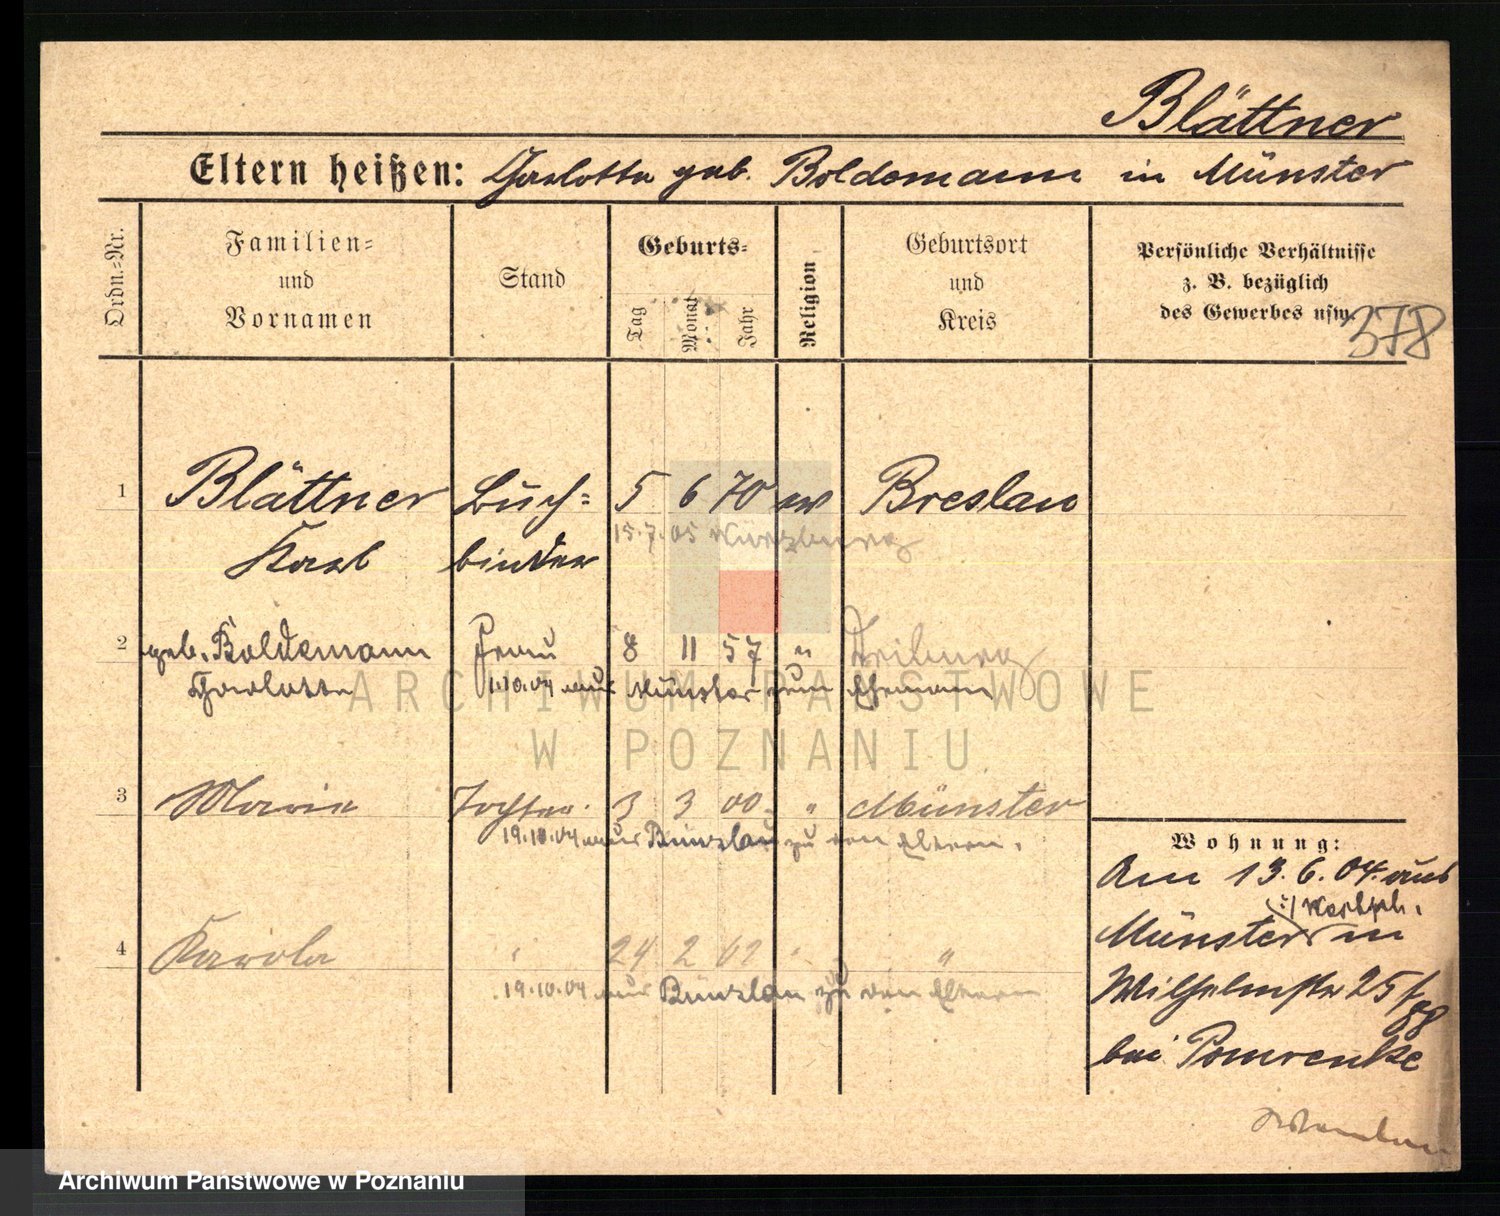 Blättner
Eltern heißen: Charlotte geb. Boldemann in Münster
Ordn.-Nr.
Familien-
und
Vornamen
Stand
Geburts-
Tag
Monat
Jahr
Religion
Geburtsort
und
Kreis
Persönliche Verhältnisse
z. B. bezüglich
des Gewerbes usw.
378
1 Blättner Buch- 5 6 70 ev Breslau
15.7.05 Würzburg
Karl binder
2 geb. Boldemann Frau 8 11 57 "
Charlotte 1.10.04 aus Münster zum Ehemann
ARCHIWUM PAŃSTWOWE
W POZNANIU
3 Marie Tochter 3 3 00 " Münster
19.10.04 aus Bunzlau zu den Eltern.
4 Karola " 24 2 02 " "
19.10.04 aus Bunzlau zu den Eltern
Wohnung:
Am 13.6.04. aus
i/ Westph.
Münster in
Wilhelmstr 25/
bei Pomrenke
Archiwum Państwowe w Poznaniu